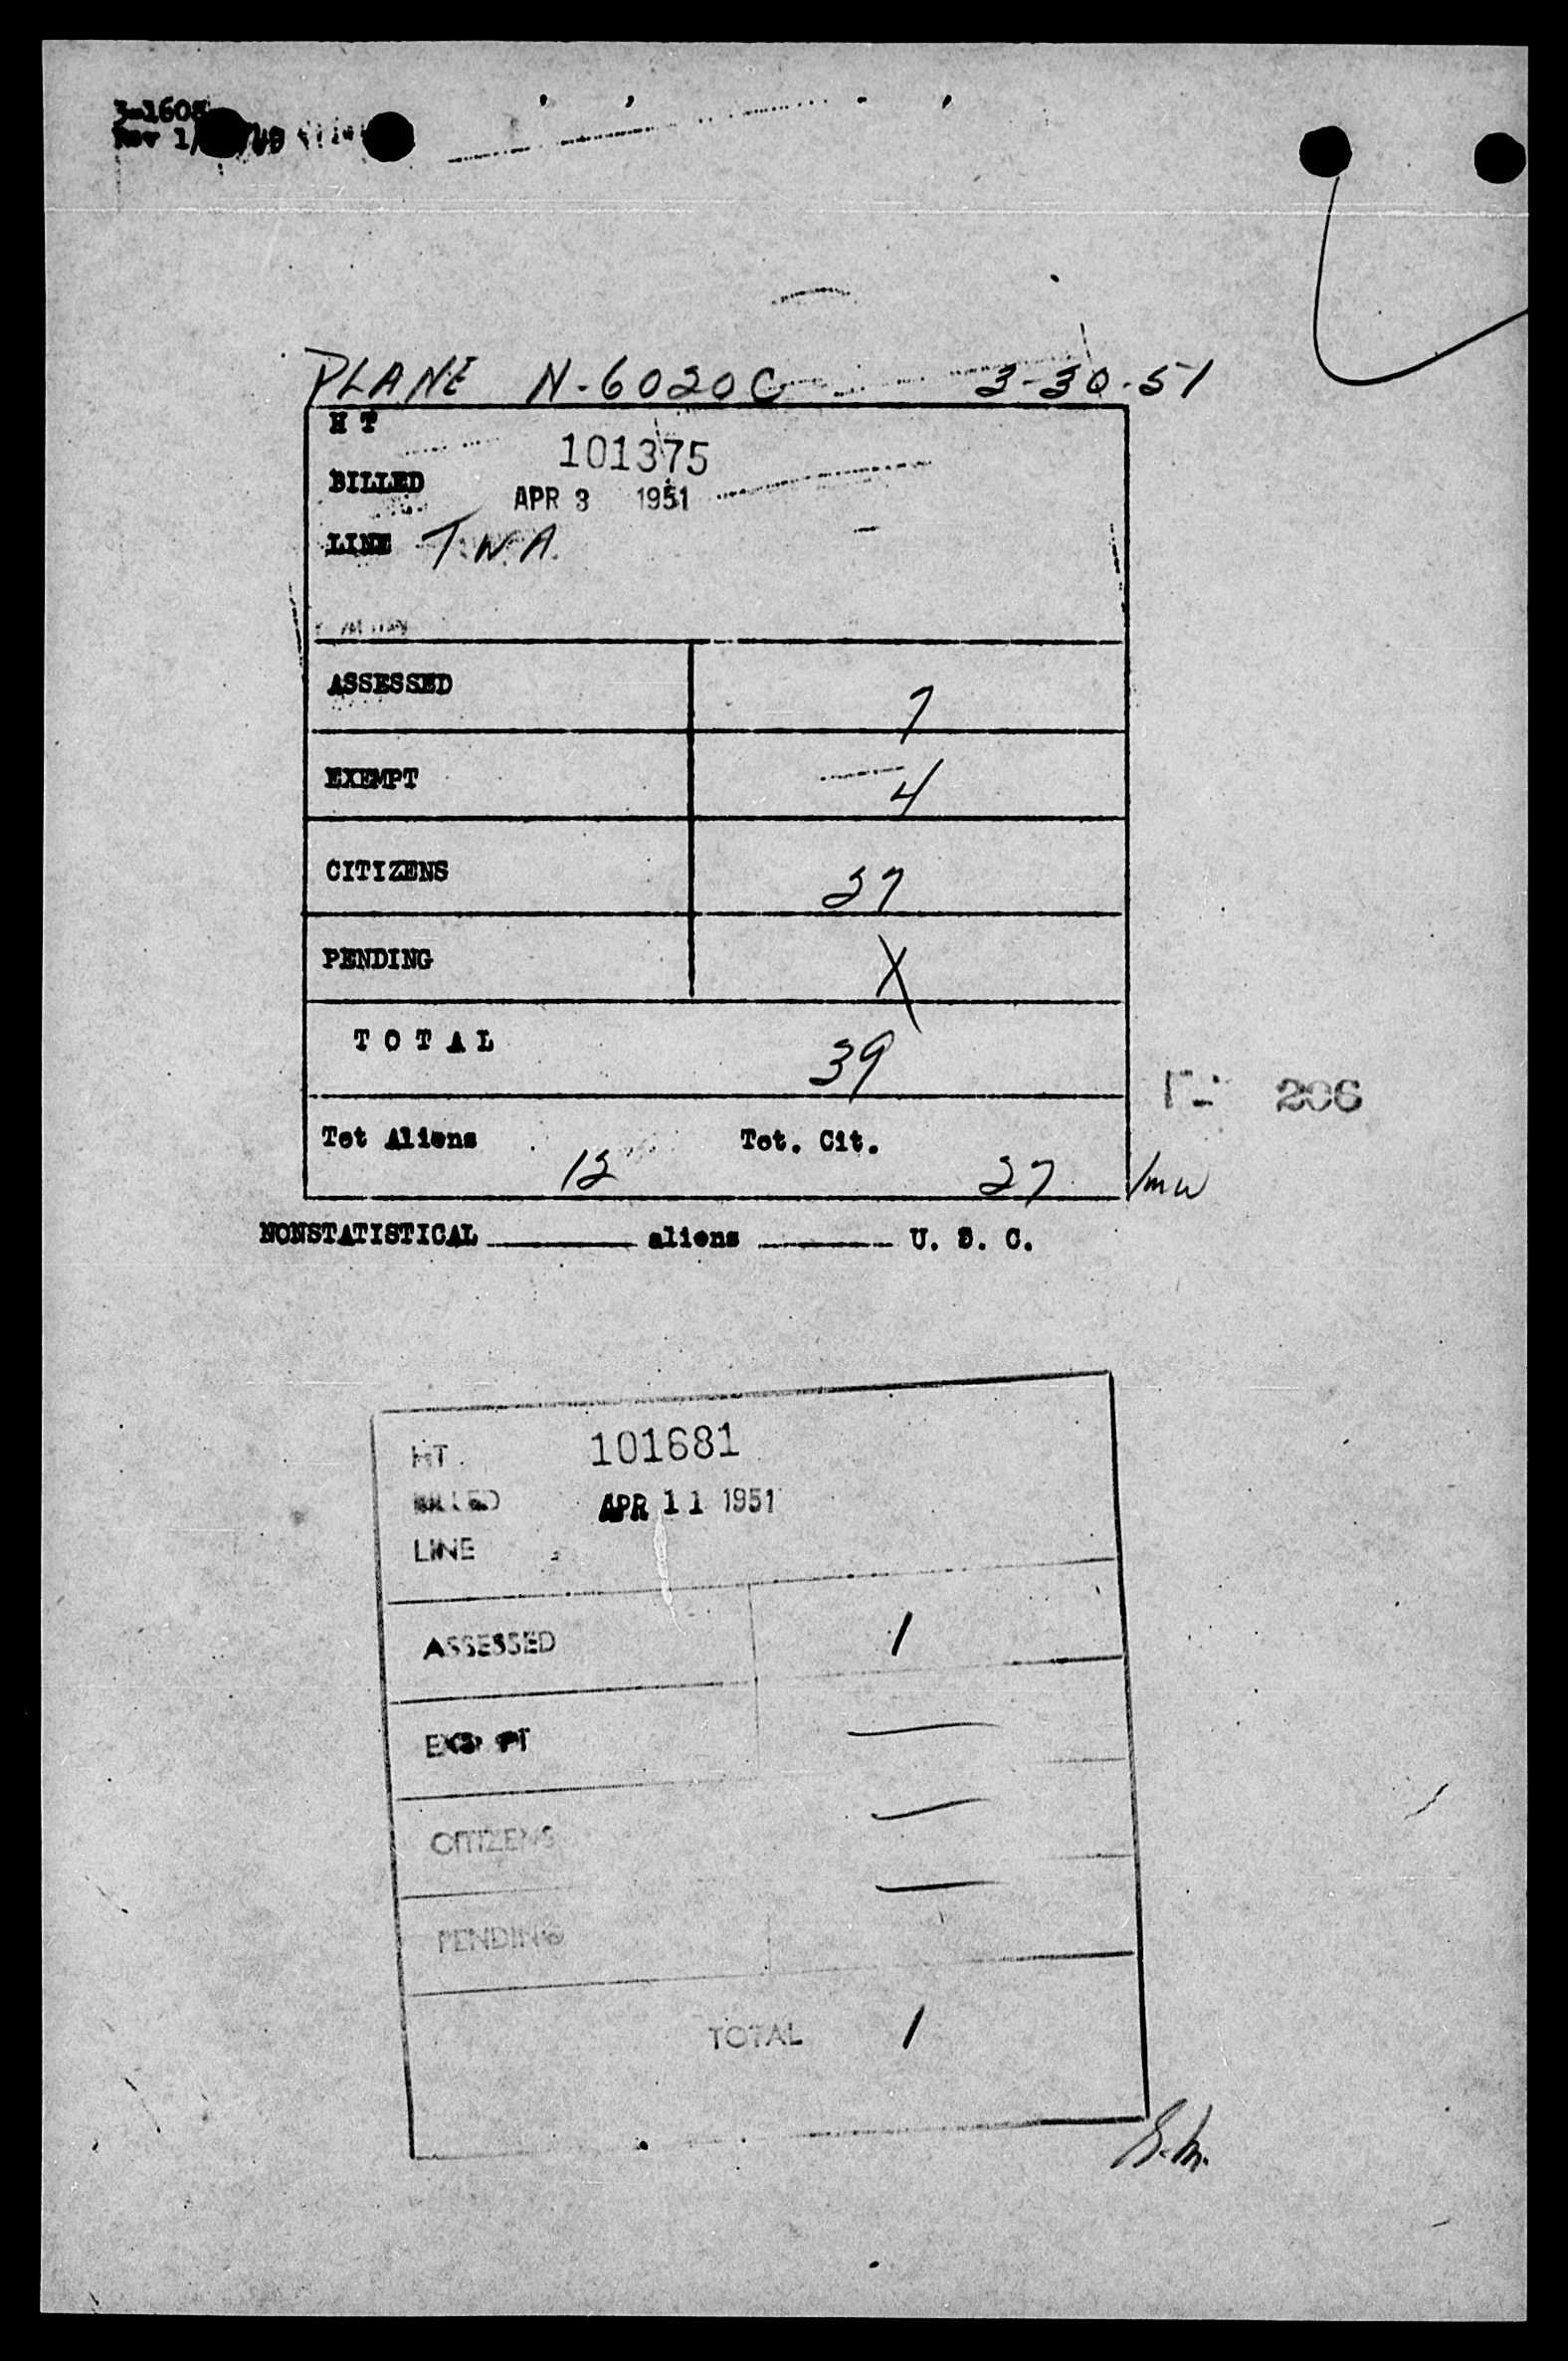 3-1603
Rev 1/
PLANE N-6020C 3-30-51
H T
101375
BILLED
APR 3 1951
LINE T.W.A.
ASSESSED 7
EXEMPT 4
CITIZENS 27
PENDING X
T O T A L 39
Tot Aliens 12 Tot. Cit. 27 /mw
206
NONSTATISTICAL ______ aliens ______ U. S. C.
HT. 101681
BILLED APR 11 1951
LINE
ASSESSED 1
EXEMPT —
CITIZENS —
PENDING —
TOTAL 1